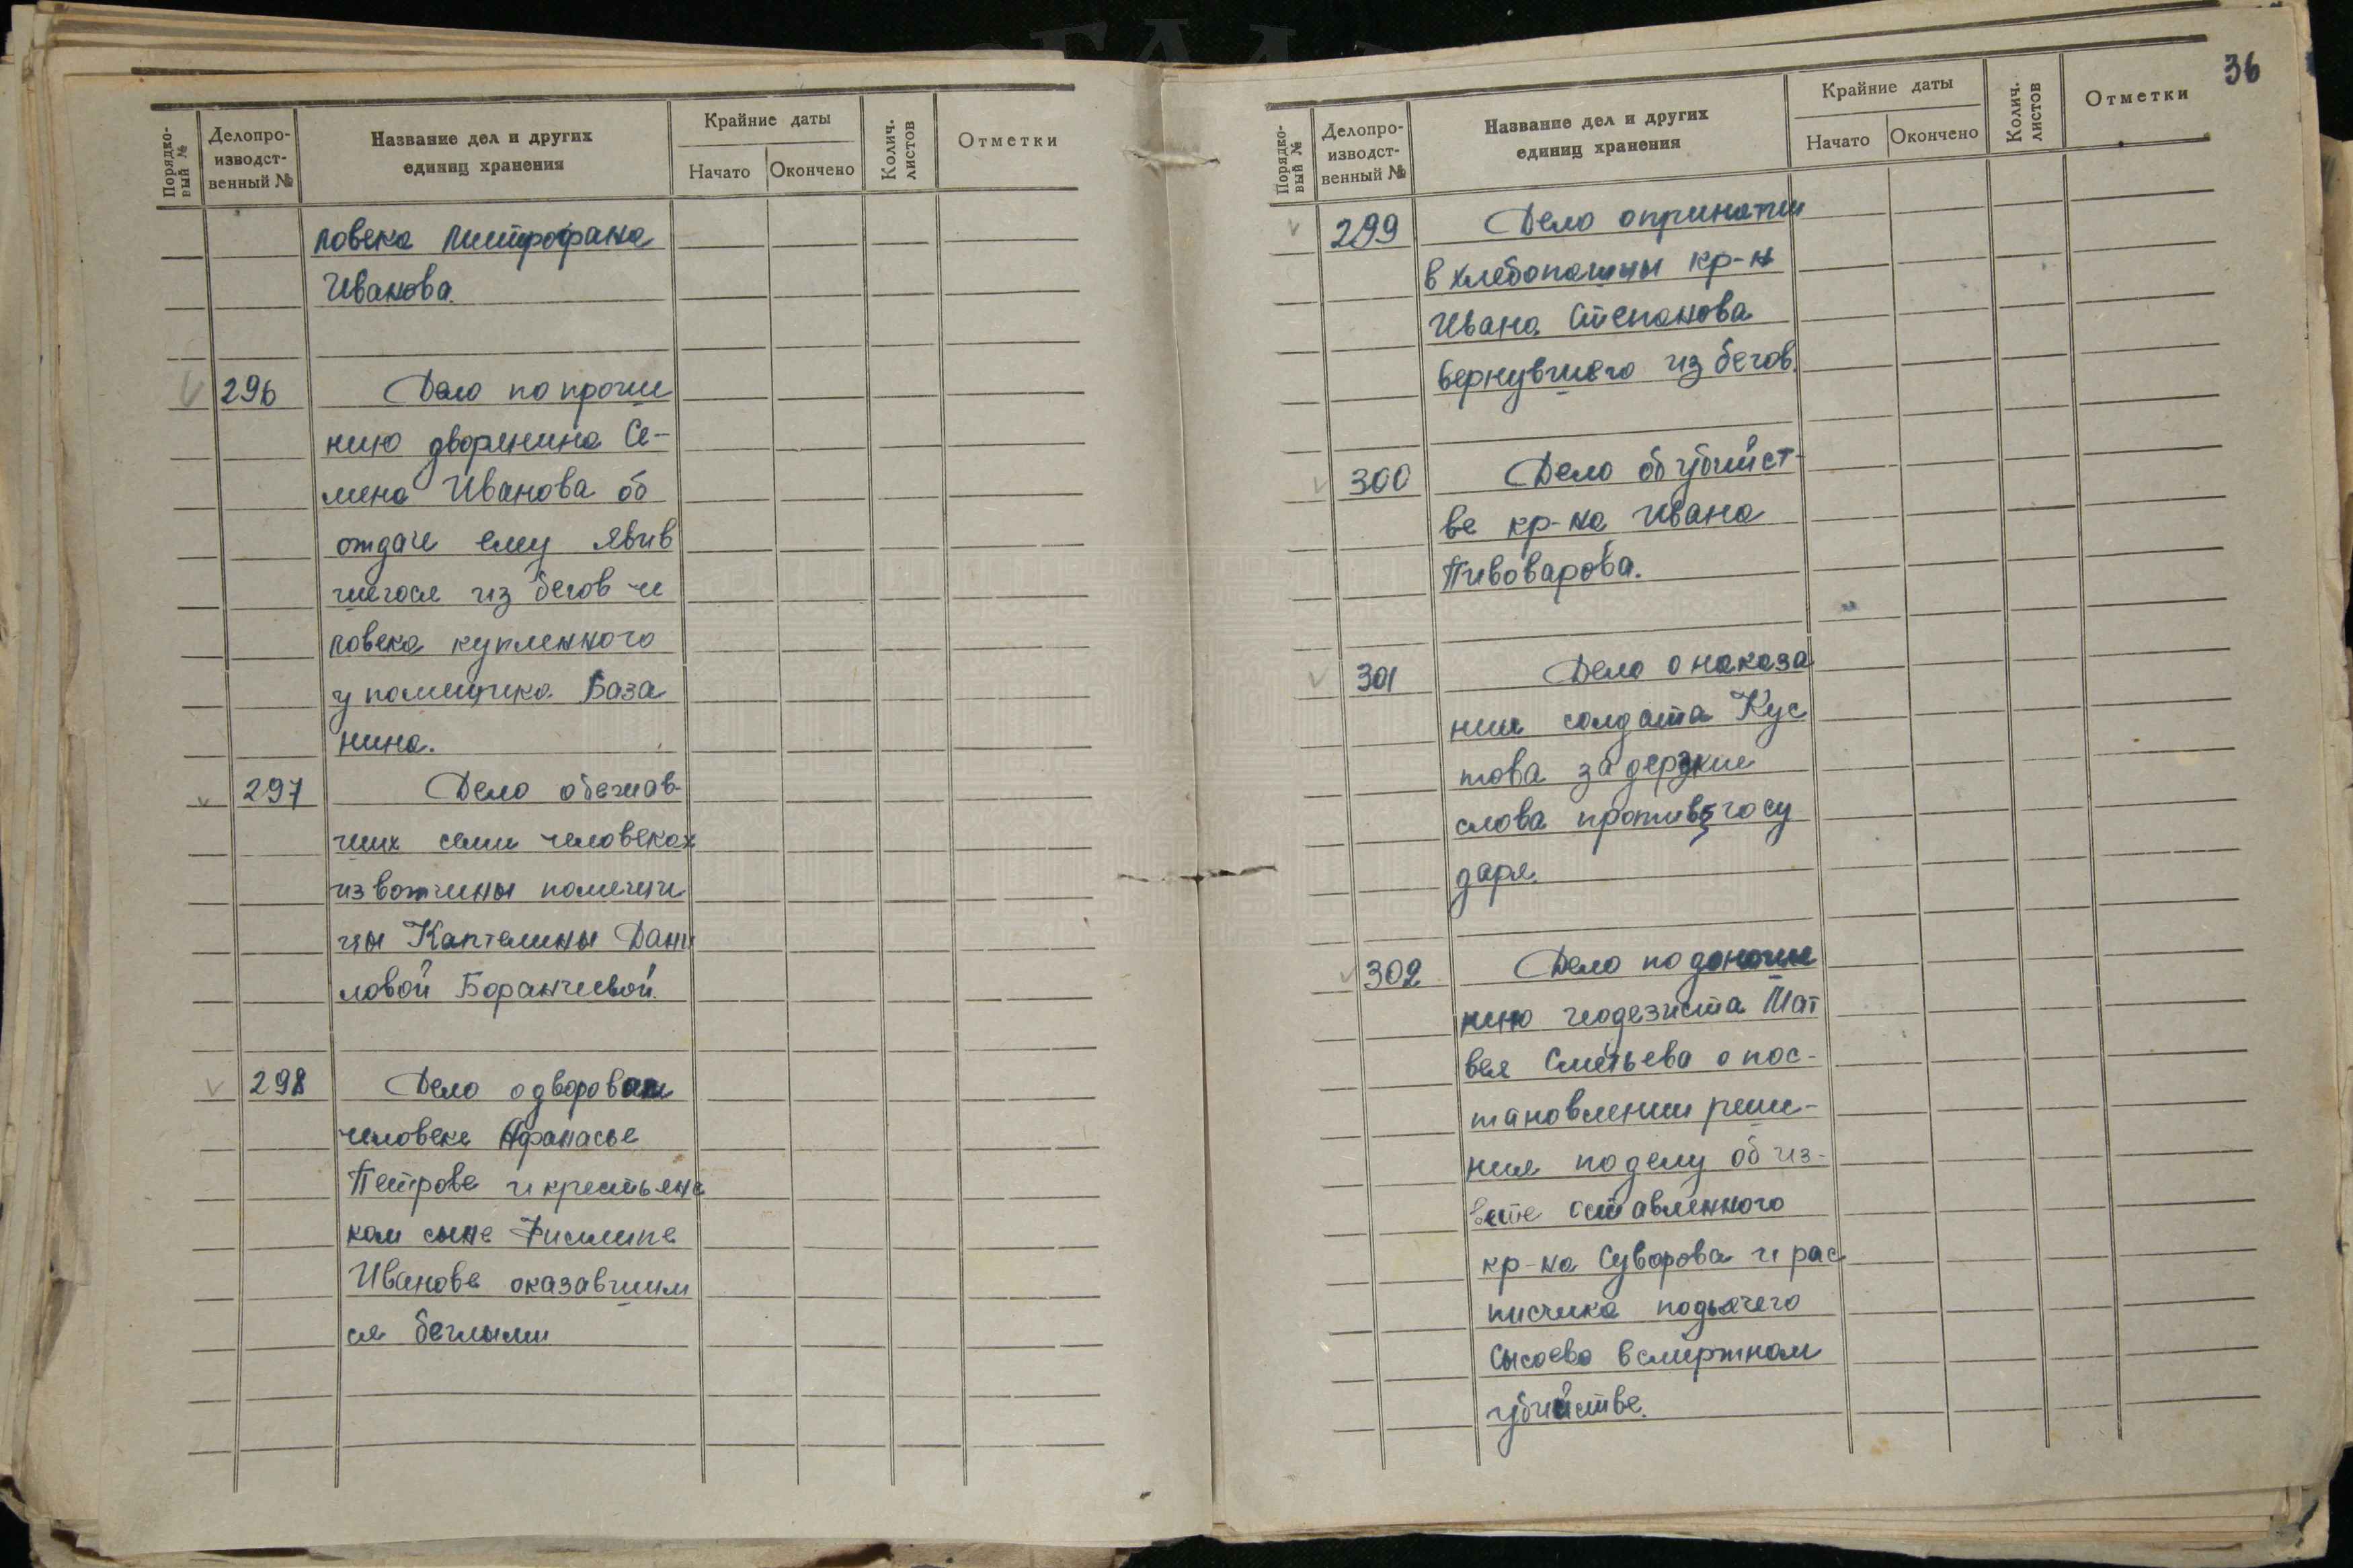 Порядко-
вый №
Делопро-
изводст-
венный №
Название дел и других
единиц хранения
Крайние даты
Начато
Окончено
Колич.
листов
Отметки
ловека Митрофана
Иванова.
296 Дело по проше
нию дворянина Се-
мена Иванова об
отдаче ему явив
шегося из бегов че
ловека купленного
у помещика База
нина.
297 Дело обежав-
ших семи человеках
из вотчины помещи
цы Каптелины Дани
ловой Боранчеевой.
298 Дело о дворовом
человеке Афанасье
Петрове и крестьянс
ком сыне Филипе
Иванове оказавшим
ся беглыми
36
Порядко-
вый №
Делопро-
изводст-
венный №
Название дел и других
единиц хранения
Крайние даты
Начато
Окончено
Колич.
листов
Отметки
299 Дело о принятии
в хлебопашцы кр-н
Ивана Степанова
вернувшего из бегов.
300 Дело об убийст-
ве кр-на Ивана
Пивоварова.
301 Дело о наказа
нии солдата Кус
това за дерзкие
слова против госу
даря.
302 Дело по доноше
нию геодезиста Мат
вея Сметьева о пос-
тановлении реше-
ния по делу об из-
вете оставленного
кр-на Суворова и рас
писчика подьячего
Сысоева в смертном
убийстве.